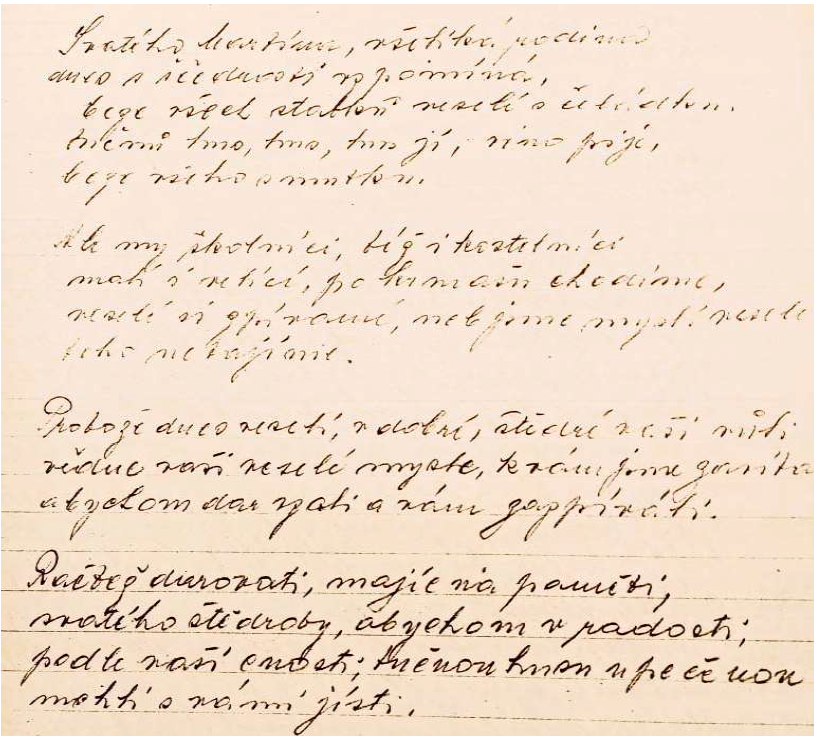 Svatého Martina, všeliká rodina
dnes s ščedrostí vzpomíná,
beze všech statků veselí s čeládkou.
tučnú hus, hus, hus jí, víno pijí,
beze všeho smutku.
Ale my školníci, též i kostelníci
malí i velící, po humnách chodíme,
veselí si zpíváme, neb jsme mysli veselé
toho netajíme.
Protož dnes veselí, v dobré, štědré vaší vůli
vědúc vaší veselé mysle, k vám jsme zavíta
abychom dar vzali a vám zazpívali.
Račtež darovati, majíc na paměti,
svatého štědroby, abychom v radosti;
podle vaší cnosti; tučnou husu upečenou
mohli s vámi jísti.